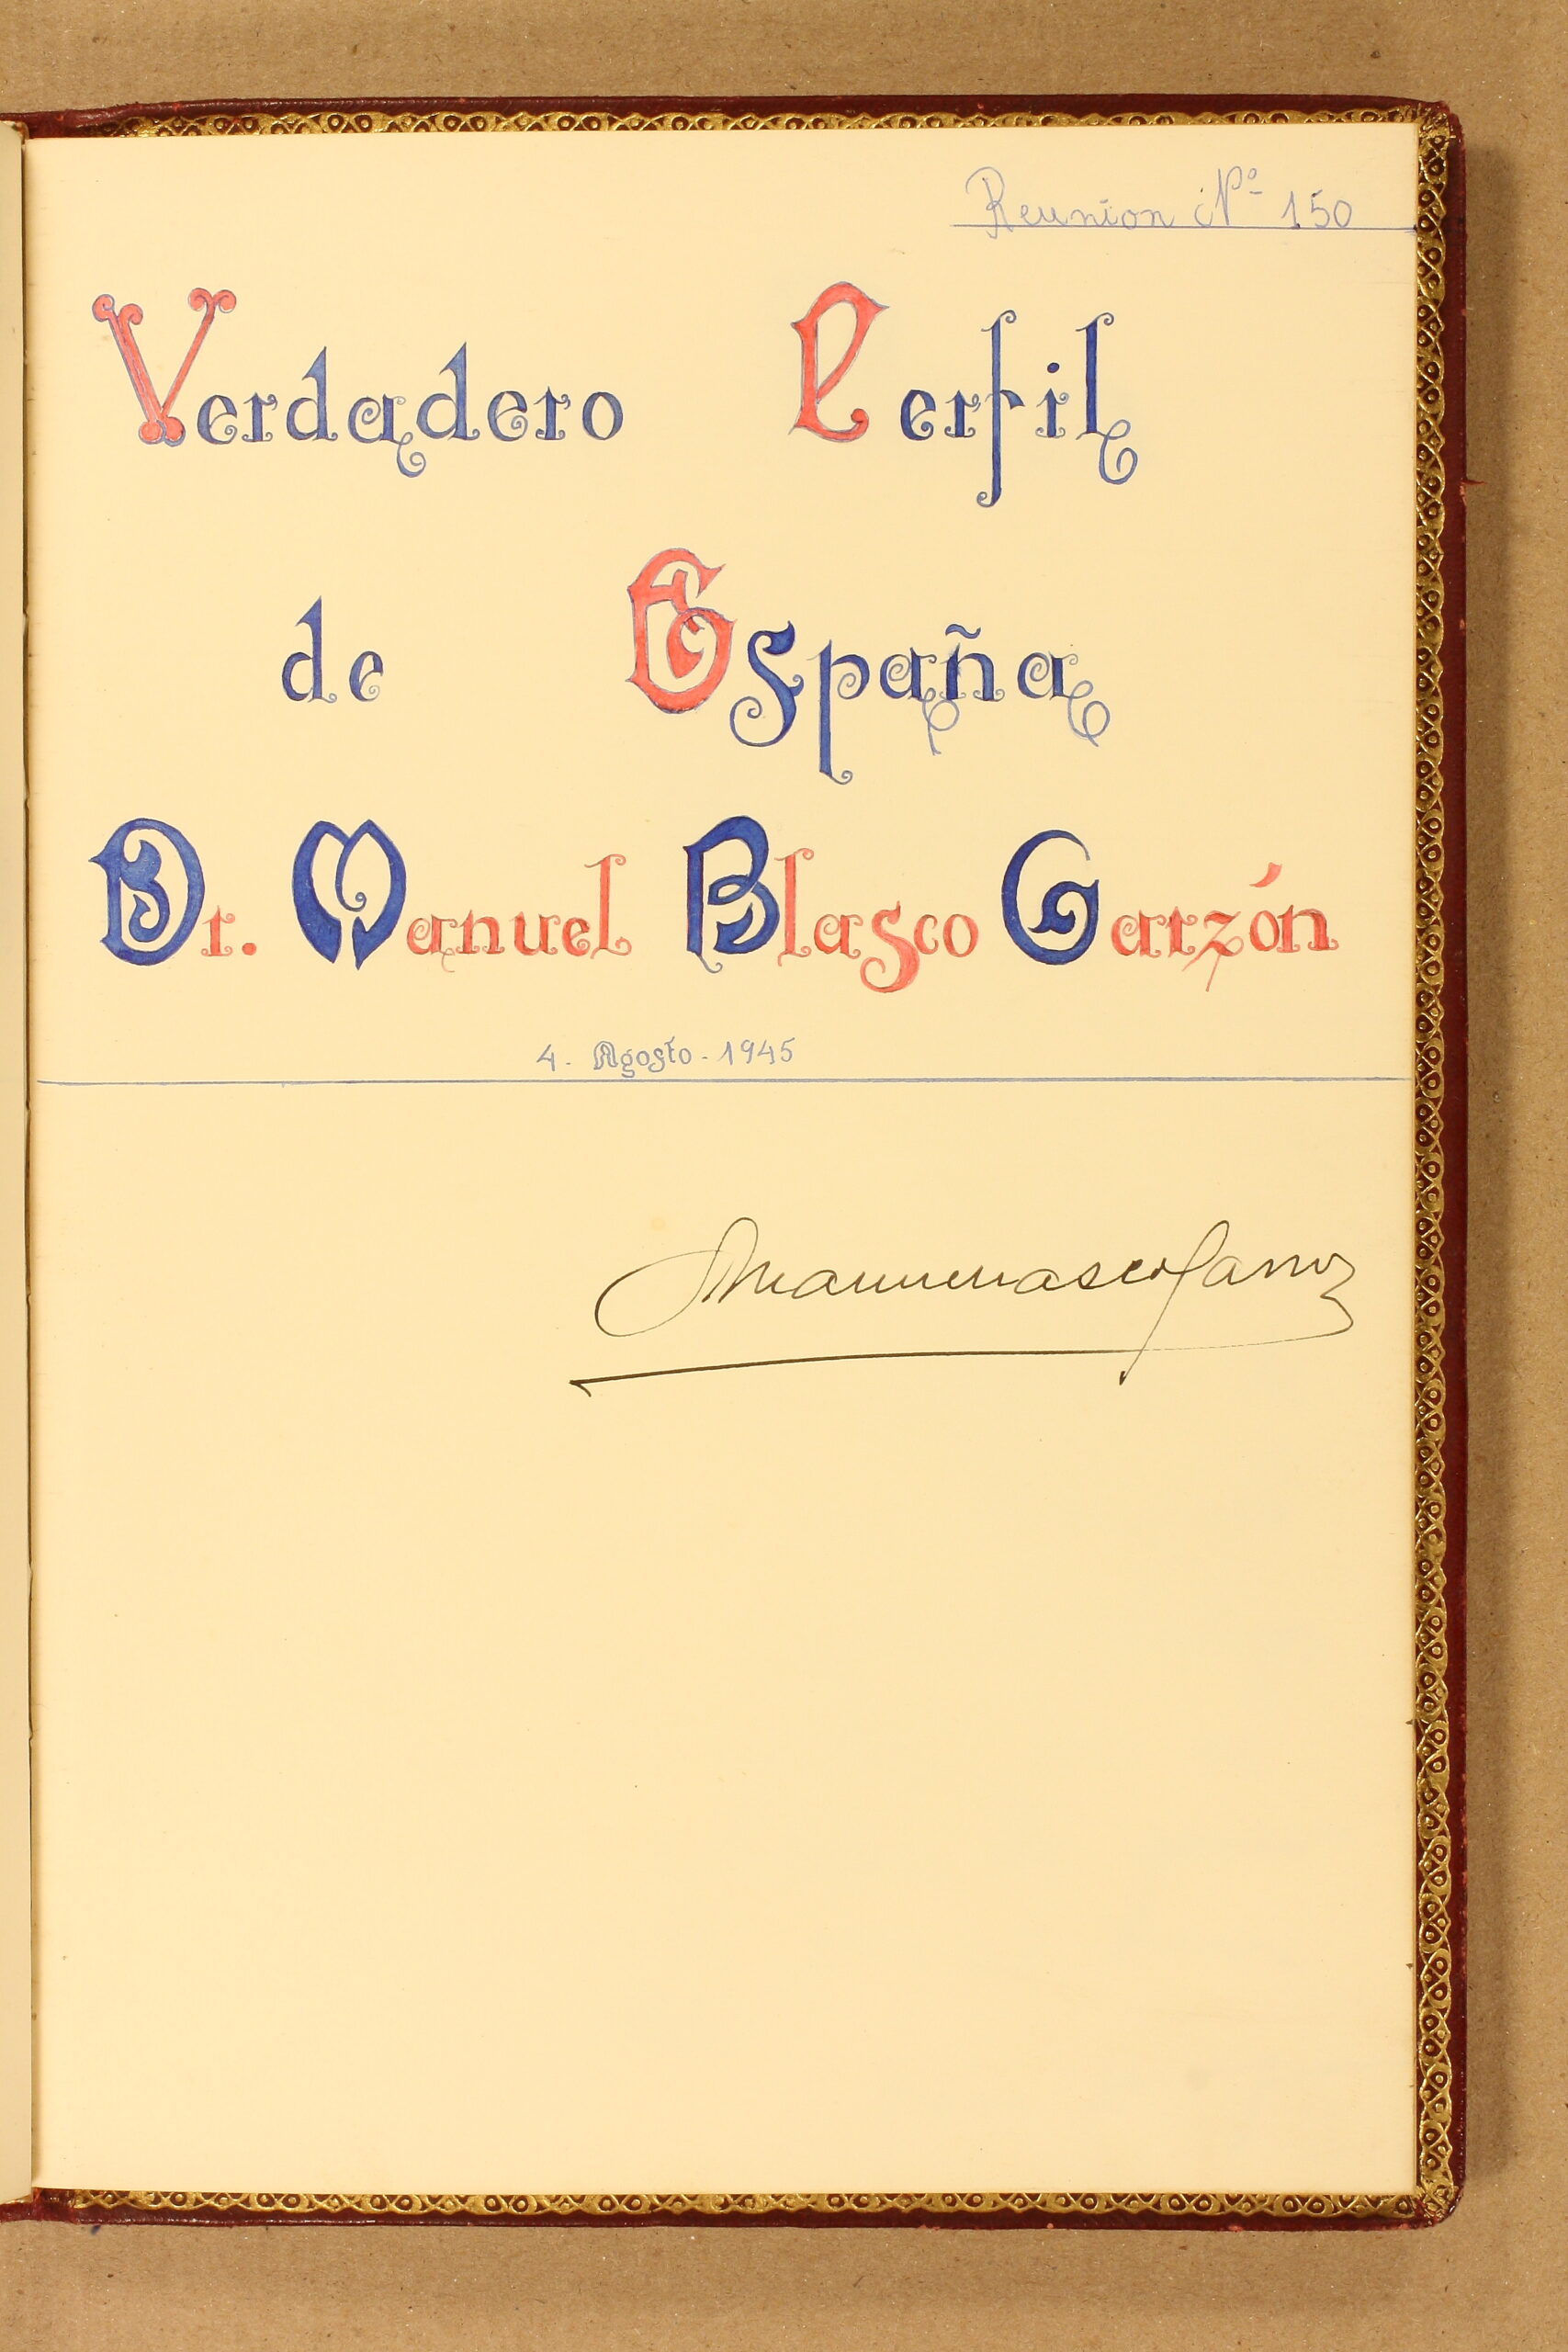 Reunion Nº 150
Verdadero Perfil
de España
Dr. Manuel Blasco Garzón
4. Agosto. 1945
Manuel Blasco Garzon